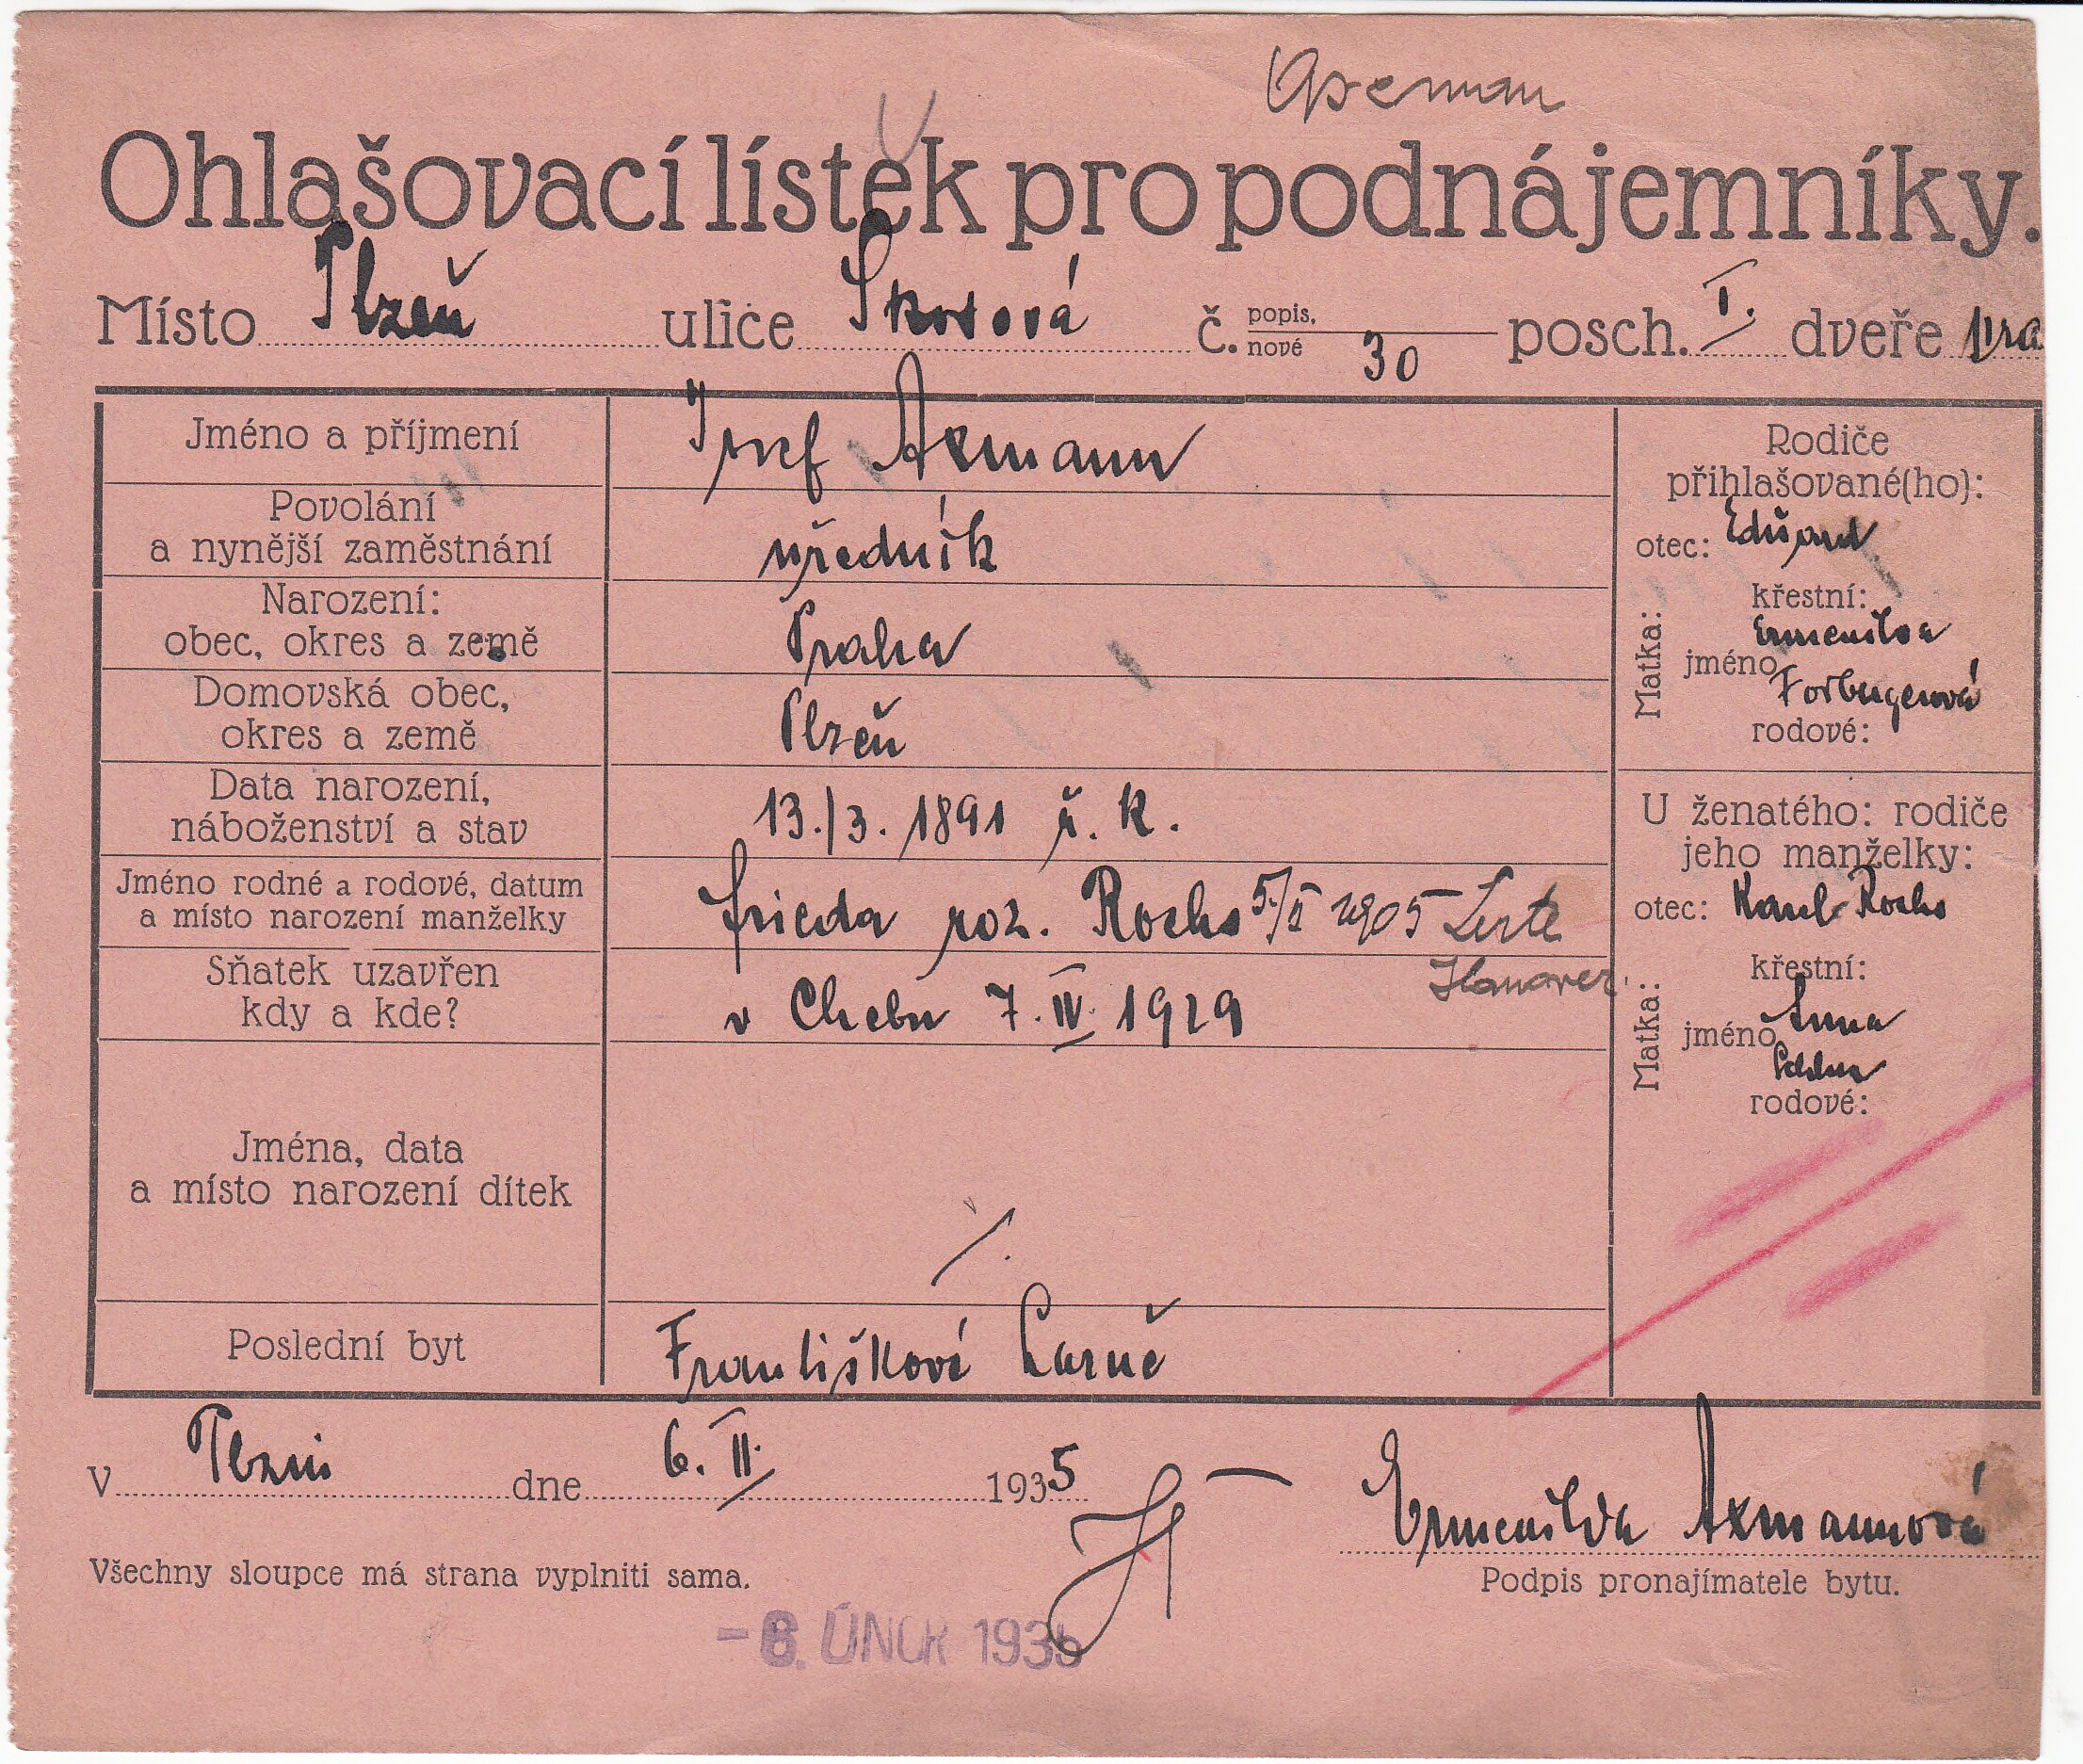 Ohlašovací lístek pro podnájemníky.
Místo Plzeň ulice Skrétova č. popis. nové 30 posch. I. dveře
Jméno a příjmení Josef Axmann
Povolání
a nynější zaměstnání úředník
Narození:
obec, okres a země Praha
Domovská obec,
okres a země Plzeň
Data narození,
náboženství a stav 13./3. 1891 ř. k.
Jméno rodné a rodové, datum
a místo narození manželky Frieda roz. Rochs 5/II 1905 Lerte
Hanover
Sňatek uzavřen
kdy a kde? v Chebu 7. IV. 1929
Jména, data
a místo narození dítek ·/.
Poslední byt Františkové Lázně
Rodiče
přihlašované(ho):
otec: Eduard
Matka:
křestní:
Ermenilda
jméno
rodové:
U ženatého: rodiče
jeho manželky:
otec: Karel Rochs
Matka:
křestní:
jméno Anna
rodové:
V Plzni dne 6. II. 1935
Ermenilda Axmannová
Všechny sloupce má strana vyplniti sama.
Podpis pronajímatele bytu.
-6. ÚNOR 1935